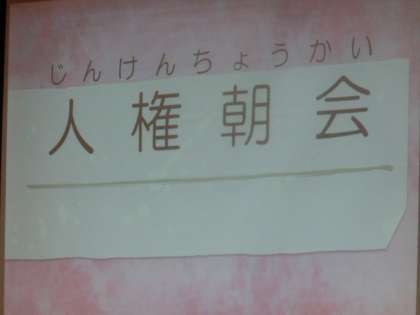 じんけんちょうかい
人権朝会